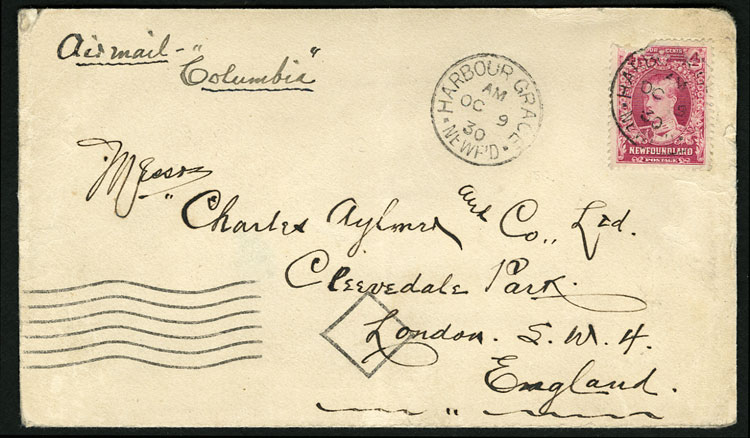 Airmail - "Columbia"
HARBOUR GRACE
AM
OC 9
30
NEWF'D
FOUR CENTS
NEWFOUNDLAND
POSTAGE
Messrs
" Charles Aylmer and Co., Ltd.
Cleevedale Park.
London. S. W. 4.
England.